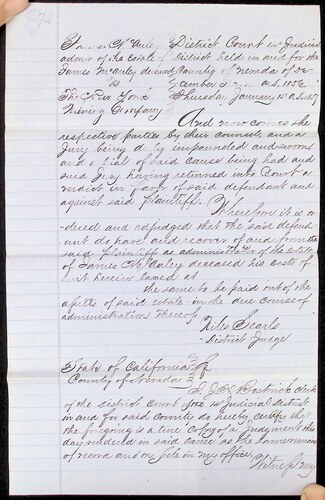 District Court 14 Judicial
admr of the Estate of District held in and for the
James McAuley deceased County of Nevada
vs A.D. 1856
Thursday January A.D. 1857
Mining Company
And now comes the
respective parties by their counsel, and a
Jury being duly impannelled and sworn
and a trial of said cause being had and
said Jury having returned into Court a
verdict in favor of said defendant and
against said plaintiff. Wherefore it is or
dered and adjudged that the said defend
ant do have and recover of and from the
said plaintiff as administrator of the estate
of James deceased his costs of
suit herein taxed at
the same to be paid out of the
assets of said estate in the due course of
administration thereof
Niles Searls
District Judge
State of California
County of Nevada
I, Bostwick clerk
of the district Court Judicial District
in and for said County do hereby certify that
the foregoing is a true Copy of a Judgment this
day rendered in said cause as the same remains
of record and on file in my office.
Witness my